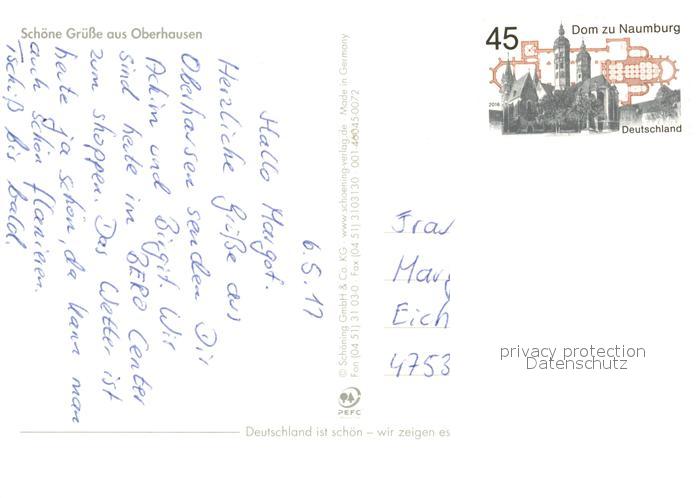 Schöne Grüße aus Oberhausen
6.5.17
Hallo Margot.
Herzliche Grüße aus
Oberhausen senden Dir
Achim und Birgit. Wir
sind heute im BERO Center
zum shoppen. Das Wetter ist
heute ja schön, da kann man
auch schön flanieren.
Tschüß bis bald.
© Schöning GmbH & Co. KG www.schoening-verlag.de Made in Germany
Fon (04 51) 31 03-0 Fax (04 51) 3103130 001 46045 0072
PEFC
45
Dom zu Naumburg
2016
Deutschland
Frau
Marg
Eich
4753
privacy protection
Datenschutz
Deutschland ist schön – wir zeigen es